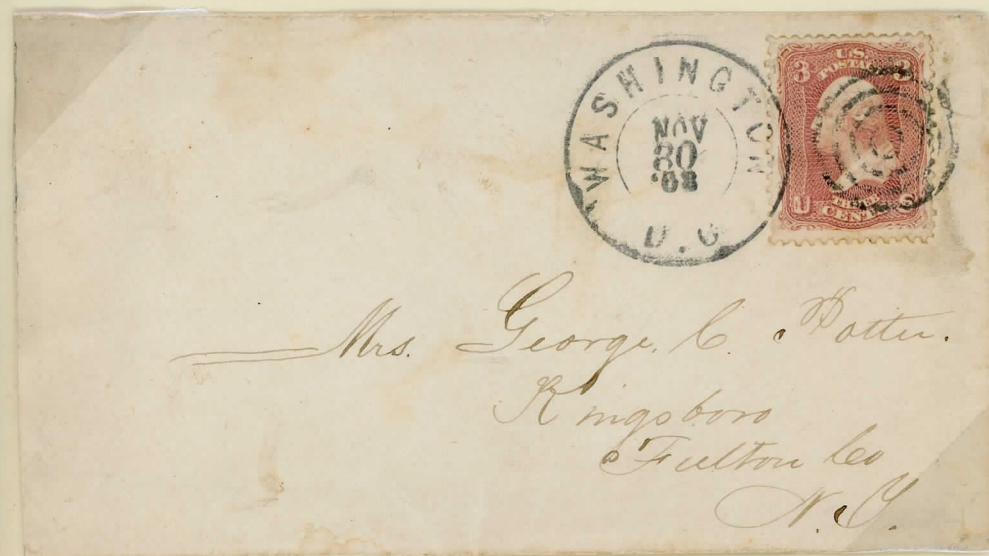 WASHINGTON
NOV
30
D.C
U.S.
POSTAGE
3 3
THREE
U CENTS S
Mrs. George. C. Potter.
Kingsboro
Fulton Co
N.Y.